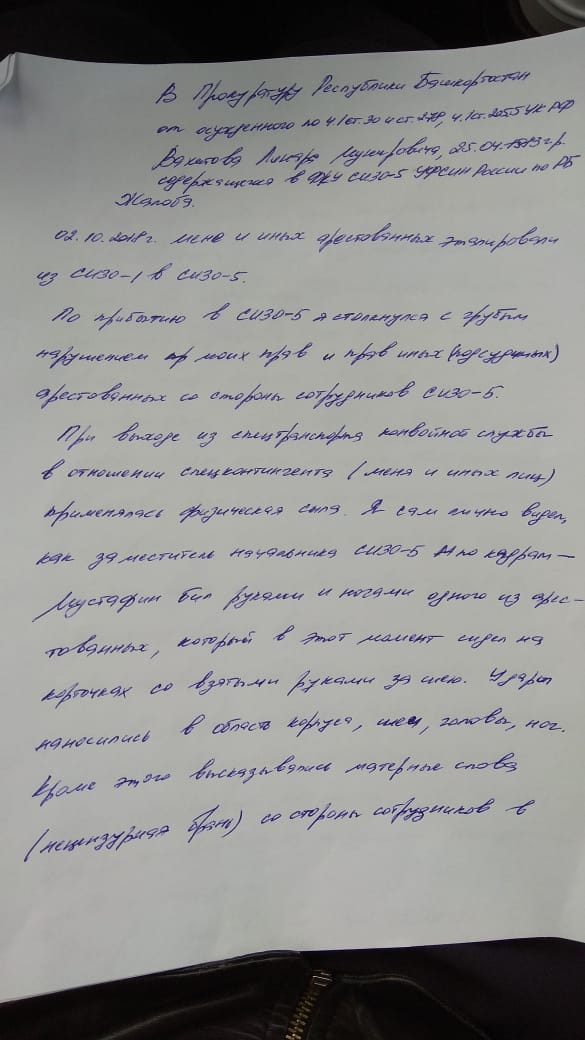 В Прокуратуру Республики Башкортостан
от осужденного по ч.1 ст.30 и ст.278, ч.1 ст.205.5 УК РФ
Вахитова Линара Мунировича, 25.04. г.р.
содержащегося в ФКУ СИЗО-5 УФСИН России по РБ
Жалоба.
02.10.2018г. меня и иных арестованных этапировали
из СИЗО-1 в СИЗО-5.
По прибытию в СИЗО-5 я столкнулся с грубым
нарушением моих прав и прав иных (подсудимых)
арестованных со стороны сотрудников СИЗО-5.
При выходе из спецтранспорта конвойной службы
в отношении спецконтингента (меня и иных лиц)
применялась физическая сила. Я сам лично видел,
как заместитель начальника СИЗО-5 по кадрам —
Мустафин бил руками и ногами одного из арес-
тованных, который в этот момент сидел на
корточках со взятыми руками за шею. Удары
наносились в область корпуса, шеи, головы, ног.
Кроме этого высказывались матерные слова
(нецензурная брань) со стороны сотрудников в